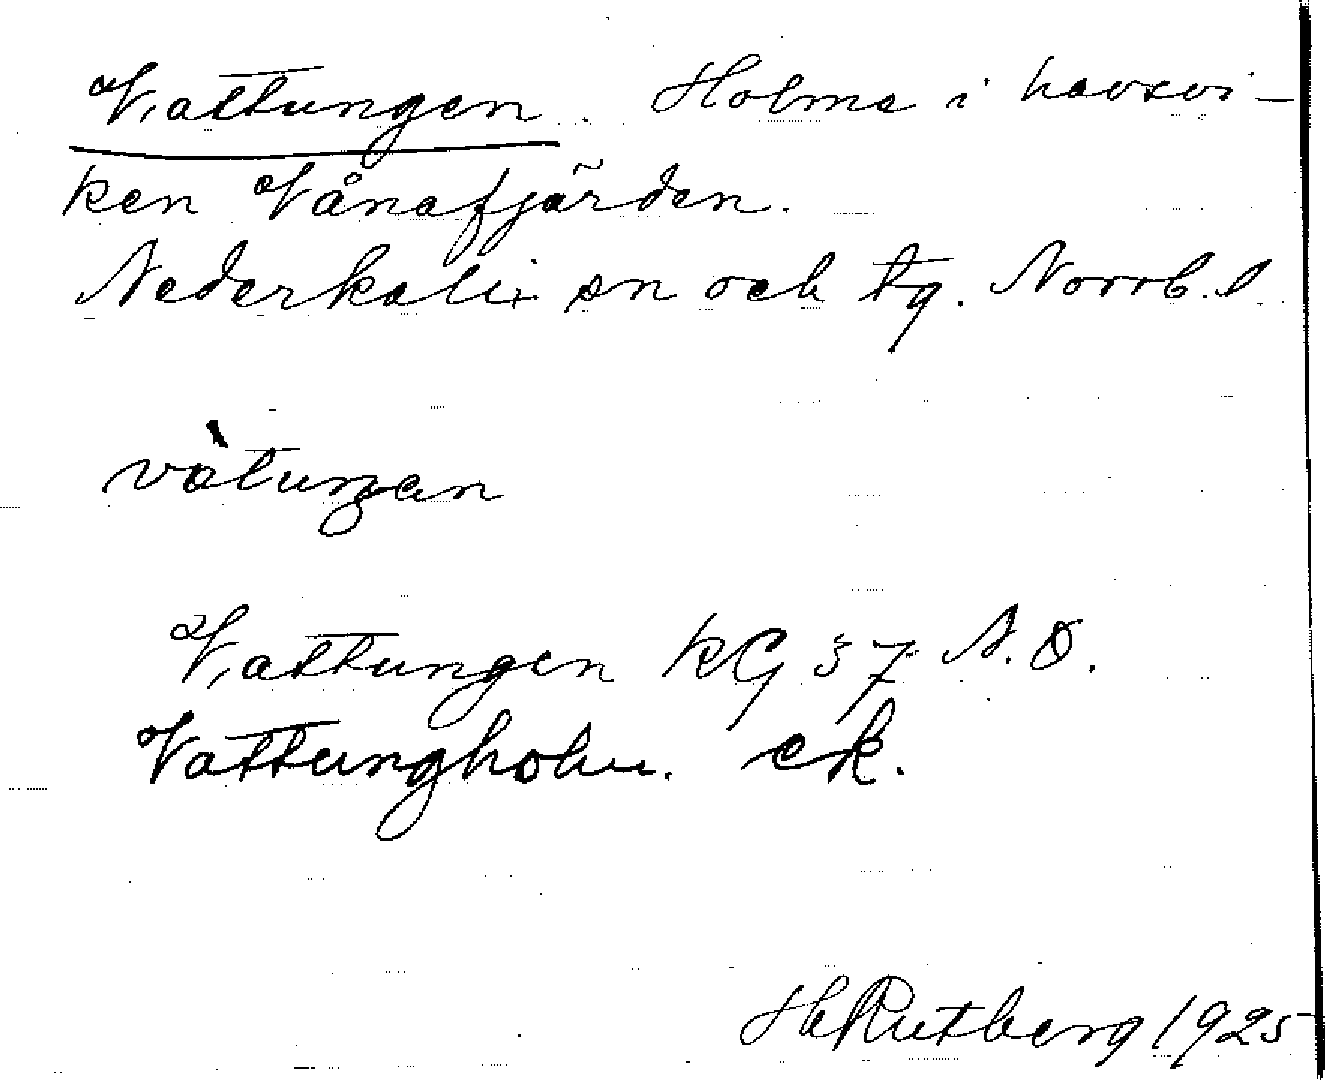 Vattungen. Holme i havsvi-
ken Vånafjärden.
Nederkalix sn och tg. Norrb. l.
vàtuŋan
Vattungen KG 37 N.O.
Vattungholm. ek.
H Rutberg 1925